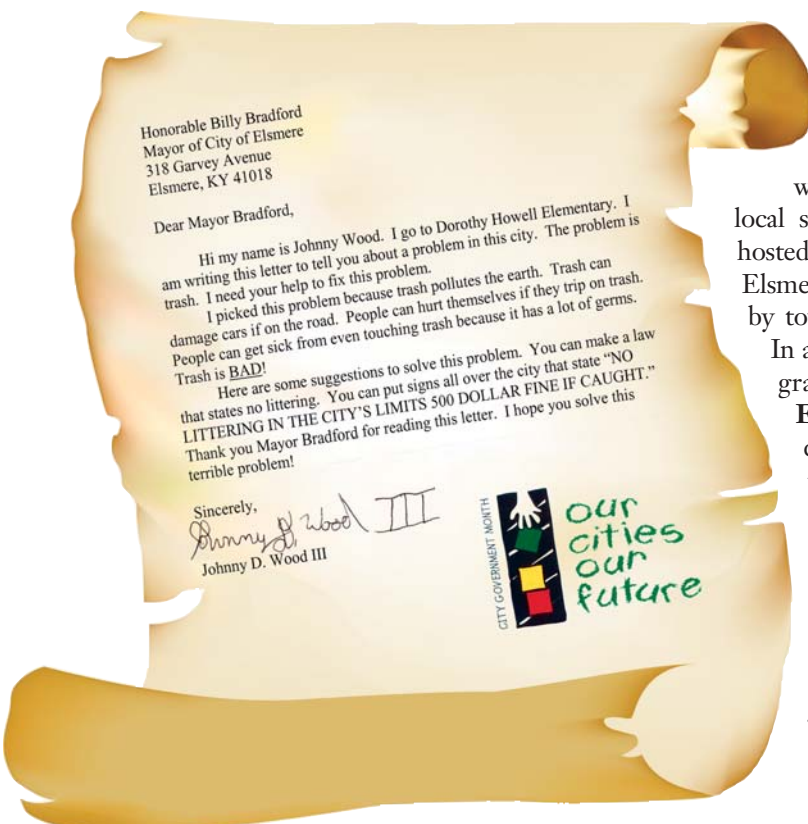 Honorable Billy Bradford
Mayor of City of Elsmere
318 Garvey Avenue
Elsmere, KY 41018
Dear Mayor Bradford,
Hi my name is Johnny Wood. I go to Dorothy Howell Elementary. I
am writing this letter to tell you about a problem in this city. The problem is
trash. I need your help to fix this problem.
I picked this problem because trash pollutes the earth. Trash can
damage cars if on the road. People can hurt themselves if they trip on trash.
People can get sick from even touching trash because it has a lot of germs.
Trash is BAD!
Here are some suggestions to solve this problem. You can make a law
that states no littering. You can put signs all over the city that state “NO
LITTERING IN THE CITY’S LIMITS 500 DOLLAR FINE IF CAUGHT.”
Thank you Mayor Bradford for reading this letter. I hope you solve this
terrible problem!
Sincerely,
Johnny D. Wood III
Johnny D. Wood III
CITY GOVERNMENT MONTH
our
cities
our
future
local
hosted
Elsme
by to
In a
gra